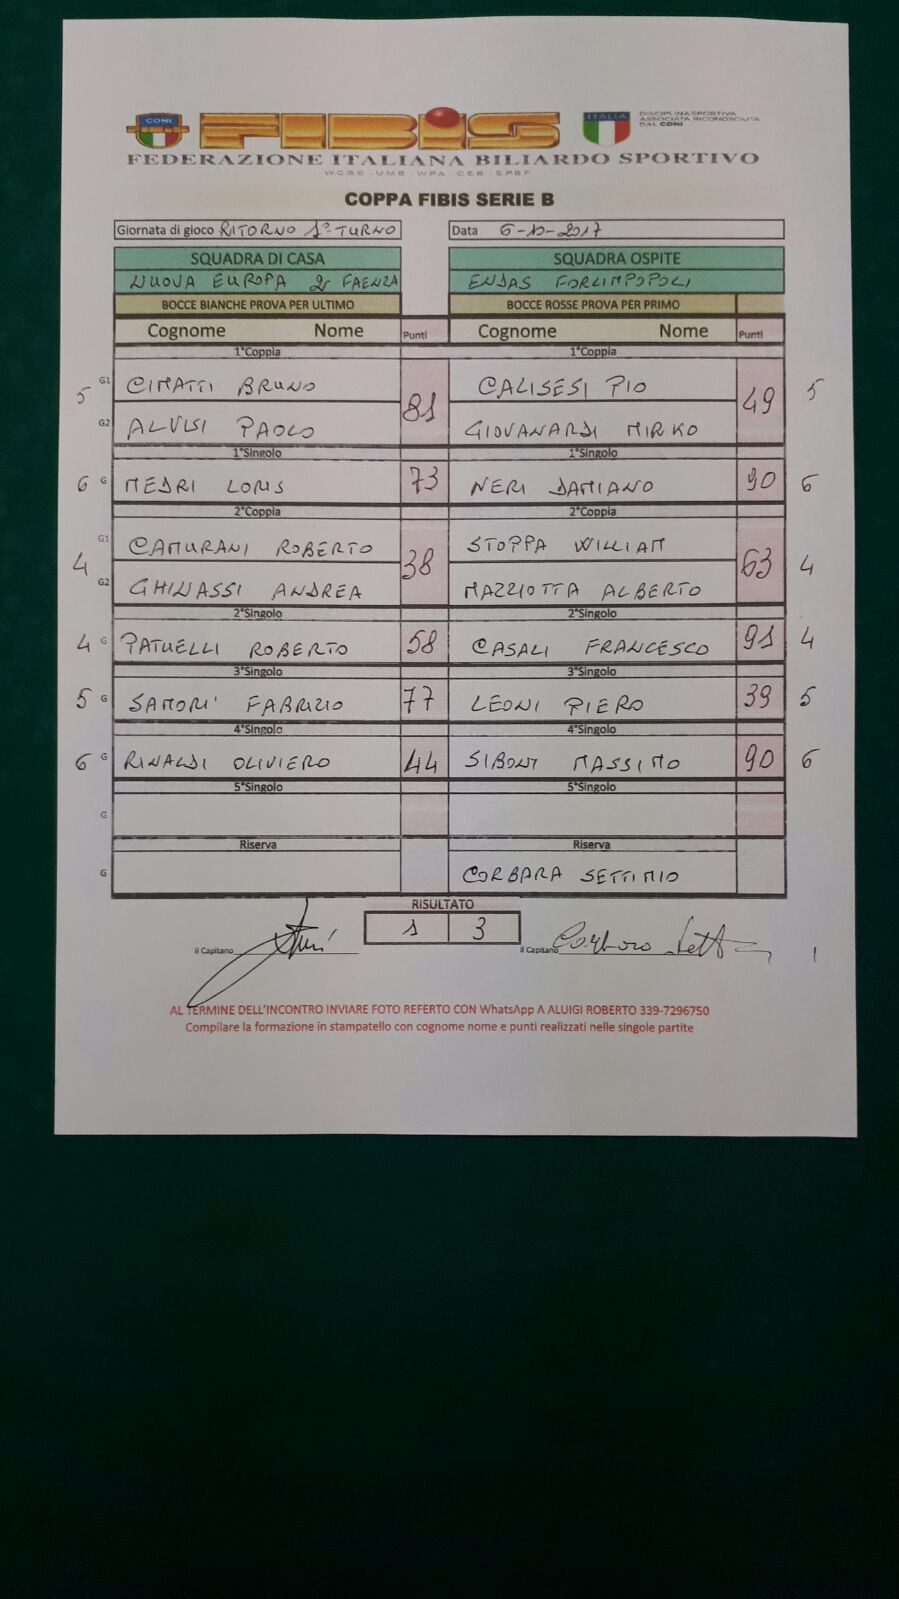 CONI FIBIS ITALIA DISCIPLINA SPORTIVA
ASSOCIATA RICONOSCIUTA
DAL CONI
FEDERAZIONE ITALIANA BILIARDO SPORTIVO
W.C.B.S - U.M.B - W.P.A - C.E.B - E.P.B.F
COPPA FIBIS SERIE B
Giornata di gioco RITORNO 1° TURNO Data 6-10-2017
SQUADRA DI CASA SQUADRA OSPITE
NUOVA EUROPA 2 FAENZA ENDAS FORLIMPOPOLI
BOCCE BIANCHE PROVA PER ULTIMO BOCCE ROSSE PROVA PER PRIMO
Cognome Nome Punti Cognome Nome Punti
1°Coppia 1°Coppia
5 G1 CIMATTI BRUNO 81 CALISESI PIO 49 5
G2 ALVISI PAOLO GIOVANARDI MIRKO
1°Singolo 1°Singolo
6 G MEDRI LORIS 73 NERI DAMIANO 90 6
2°Coppia 2°Coppia
4 G1 CAMURANI ROBERTO 38 STOPPA WILLIAM 63 4
G2 GHINASSI ANDREA MAZZIOTTA ALBERTO
2°Singolo 2°Singolo
4 G PATUELLI ROBERTO 58 CASALI FRANCESCO 91 4
3°Singolo 3°Singolo
5 G SAMORI' FABRIZIO 77 LEONI PIERO 39 5
4°Singolo 4°Singolo
6 G RINALDI OLIVIERO 44 SIBONI MASSIMO 90 6
5°Singolo 5°Singolo
G
Riserva Riserva
G CORBARA SETTIMIO
RISULTATO
1 3
il Capitano il Capitano
AL TERMINE DELL'INCONTRO INVIARE FOTO REFERTO CON WhatsApp A ALUIGI ROBERTO 339-7296750
Compilare la formazione in stampatello con cognome nome e punti realizzati nelle singole partite